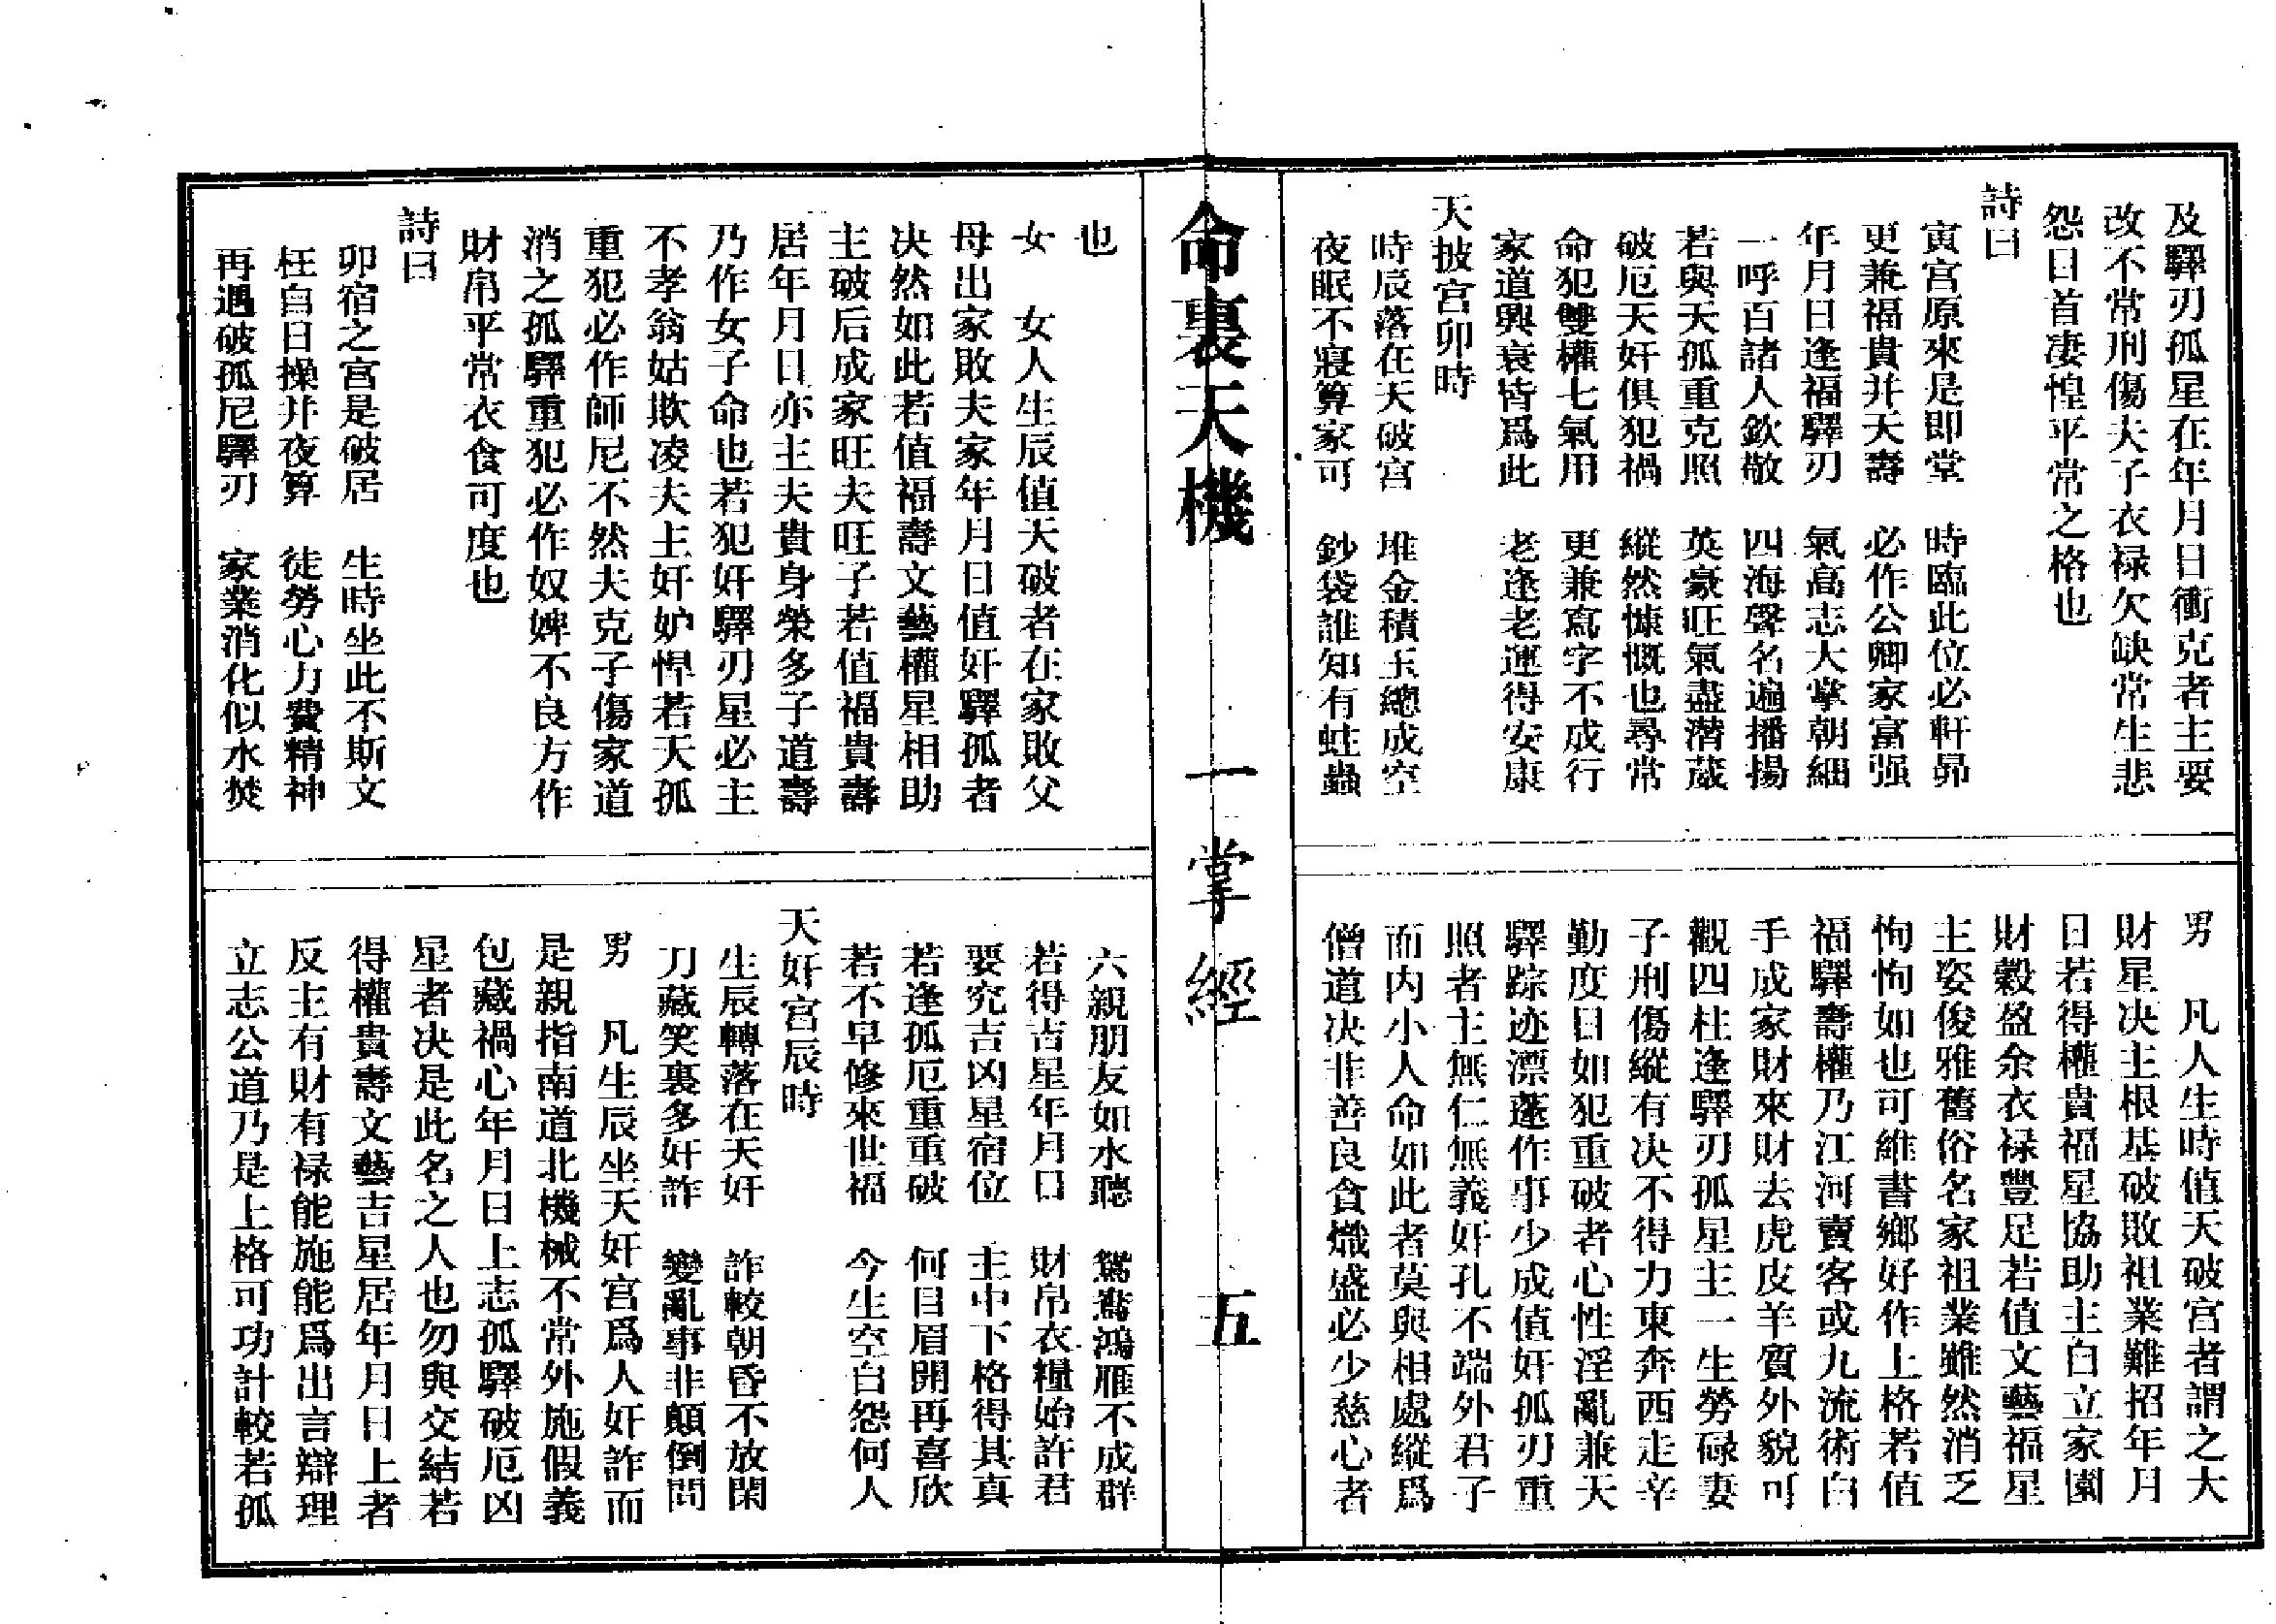 及驛刃孤星在年月日衝克者主要
改不常刑傷夫子衣禄欠缺常生悲
怨日首凄惶平常之格也
詩曰
寅宮原來是即堂　時臨此位必軒昴
更兼福貴并天壽　必作公卿家富强
年月日逢福驛刃　氣高志大掌朝細
一呼百諸人欽敬　四海聲名遍播揚
若與天孤重克照　英豪旺氣盡潛葳
破厄天奸俱犯禍　縱然慷慨也尋常
命犯雙權七氣用　更兼寫字不成行
家道興衰皆爲此　老逢老運得安康
天披宮卯時
時辰落在天破宮　堆金積玉總成空
夜眠不寢算家可　鈔袋誰知有蛀蟲
男　凡人生時值天破宮者謂之大
財星决主根基破敗祖業難招年月
日若得權貴福星協助主自立家園
財穀盈余衣禄豐足若值文藝福星
主姿俊雅舊俗名家祖業雖然消乏
恂恂如也可維書鄉好作上格若值
福驛壽權乃江河賣客或九流術自
手成家財來財去虎皮羊質外貌可
觀四柱逢驛刃孤星主一生勞碌妻
子刑傷縱有决不得力東奔西走辛
勤度日如犯重破者心性淫亂兼天
驛踪迹漂蓬作事少成值奸孤刃重
照者主無仁無義奸孔不端外君子
而内小人命如此者莫與相處縱爲
僧道决非善良貪熾盛必少慈心者
命裏天機　一掌經　五
也
女　女人生辰值天破者在家敗父
母出家敗夫家年月日值奸驛孤者
决然如此若值福壽文藝權星相助
主破后成家旺夫旺子若值福貴壽
居年月日亦主夫貴身榮多子道壽
乃作女子命也若犯奸驛刃星必主
不孝翁姑欺凌夫主奸妒悍若天孤
重犯必作師尼不然夫克子傷家道
消之孤驛重犯必作奴婢不良方作
財帛平常衣食可度也
詩曰
卯宿之宮是破居　生時坐此不斯文
枉自日操并夜算　徒勞心力費精神
再遇破孤尼驛刃　家業消化似水焚
六親朋友如水聽　鴛鴦鴻雁不成群
若得吉星年月日　財帛衣糧始許君
要究吉凶星宿位　主中下格得其真
若逢孤厄重重破　何目眉開再喜欣
若不早修來世福　今生空自怨何人
天奸宮辰時
生辰轉落在天奸　詐較朝昏不放閑
刀藏笑裏多奸詐　變亂事非顛倒問
男　凡生辰坐天奸宮爲人奸詐而
是親指南道北機械不常外施假義
包藏禍心年月日上志孤驛破厄凶
星者决是此名之人也勿與交結若
得權貴壽文藝吉星居年月日上者
反主有財有禄能施能爲出言辯理
立志公道乃是上格可功計較若孤